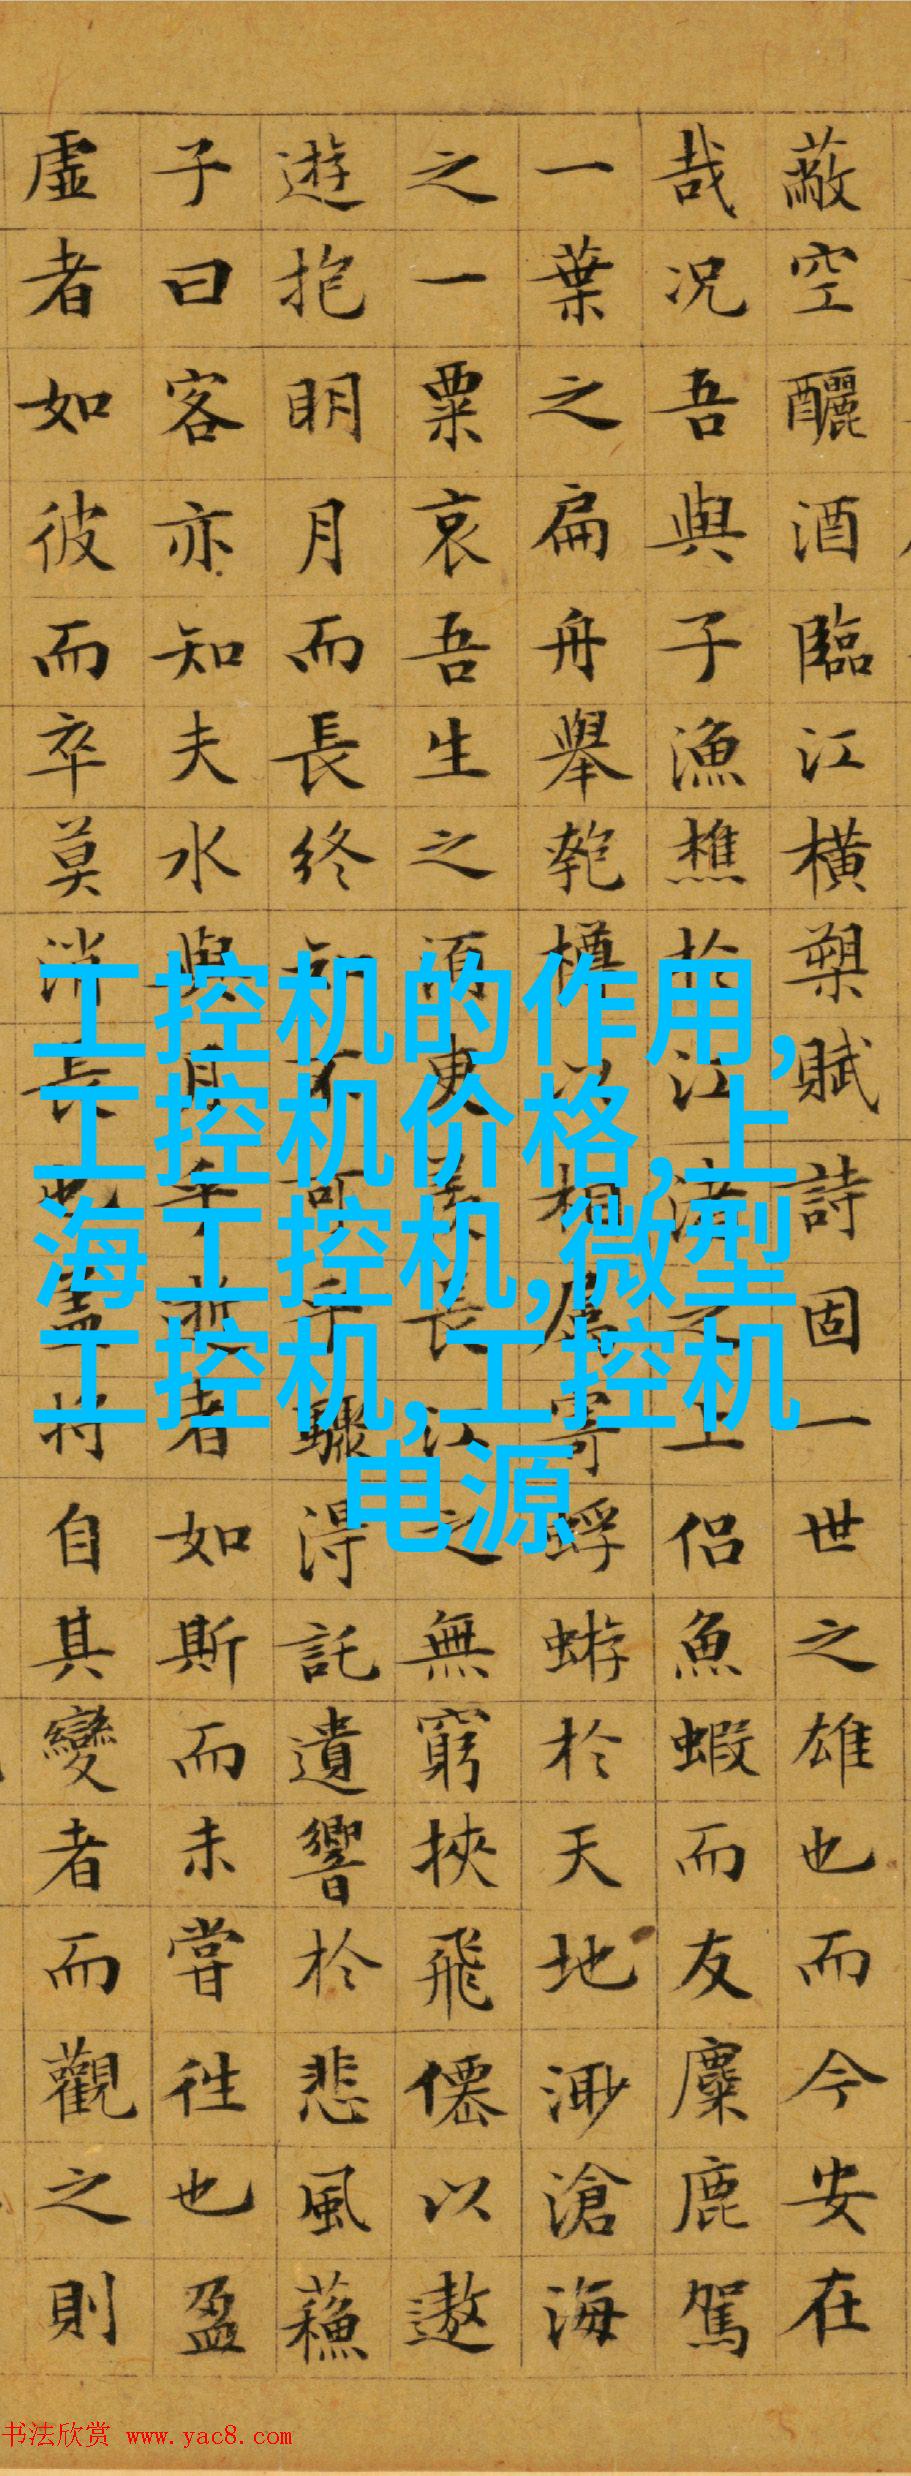 蔽空釃酒臨江橫槊賦詩固一世之雄也而今安在
哉况吾與子漁樵於江渚之上侶魚蝦而友麋鹿駕
一葉之扁舟舉匏樽以相屬寄蜉蝣於天地渺滄海
之一粟哀吾生之須臾羨長江之無窮挾飛僊以遨
遊抱明月而長終知不可乎驟得託遺響於悲風蘓
子曰客亦知夫水與月乎逝者如斯而未嘗往也盈
虛者如彼而卒莫消長也蓋將自其變者而觀之則
工控机的作用,
工控机价格,上
海工控机,微型
工控机,工控机
电源
书法欣赏 www.yac8.com